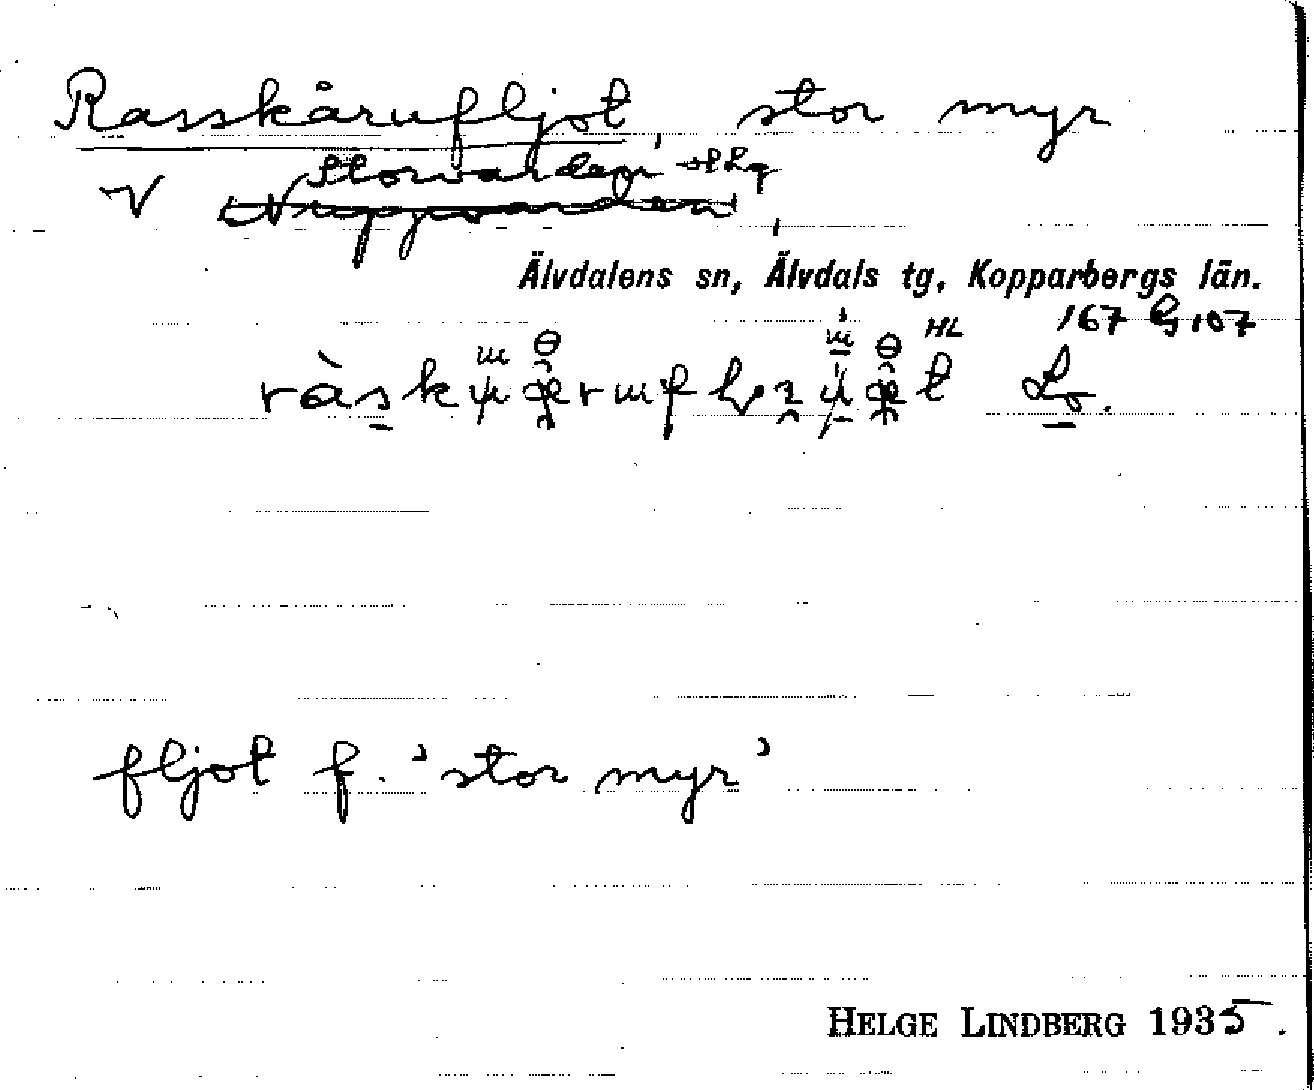 Rasskårufljot, stor myr
Storvarden
V Nuppvarden,
Älvdalens sn, Älvdals tg, Kopparbergs län.
HL 167 G 107
fljot f. 'stor myr'
HELGE LINDBERG 1935.